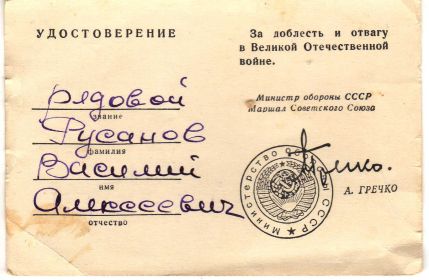 УДОСТОВЕРЕНИЕ
рядовой
звание
Русанов
фамилия
Василий
имя
Алексеевич
отчество
За доблесть и отвагу
в Великой Отечественной
войне.
Министр обороны СССР
Маршал Советского Союза
А. ГРЕЧКО
МИНИСТЕРСТВО ОБОРОНЫ СССР